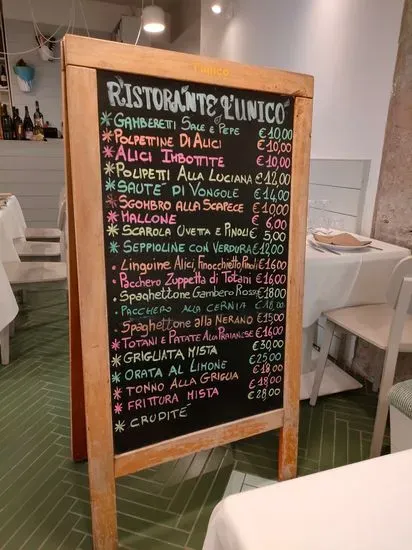 l'unico
RISTORANTE L'UNICO
* GAMBERETTI SALE E PEPE € 10,00
* POLPETTINE DI ALICI € 10,00
* ALICI IMBOTTITE € 10,00
* POLIPETTI ALLA LUCIANA € 12,00
* SAUTÉ DI VONGOLE € 14,00
* SGOMBRO ALLA SCAPECE € 10,00
* MALLONE € 6,00
* SCAROLA UVETTA E PINOLI € 5,00
* SEPPIOLINE CON VERDURA € 12,00
. LINGUINE ALICI, FINOCCHIETTO, PINOLI € 16,00
. PACCHERO ZUPPETTA DI TOTANI € 16,00
. SPAGHETTONE GAMBERO ROSSO € 18,00
. PACCHERO ALLA CERNIA € 18,00
. SPAGHETTONE ALLA NERANO € 15,00
* TOTANI E PATATE ALLA PRAIANESE € 16,00
* GRIGLIATA MISTA € 30,00
* ORATA AL LIMONE € 25,00
* TONNO ALLA GRIGLIA € 18,00
* FRITTURA MISTA € 18,00
* CRUDITÉ € 28,00